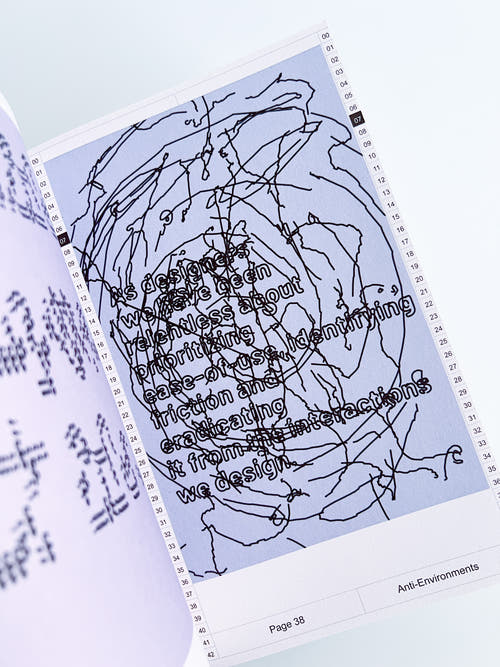 00
01
02
03
04
05
06
07
08
09
10
11
12
13
14
15
16
17
18
19
20
21
22
23
24
25
26
27
28
29
30
31
32
33
34
35
36
37
38
39
40
41
42
As designers
we have been
relentless about
prioritizing
ease-of-use, identifying
friction and
eradicating
it from the interactions
we design.
00
01
02
03
04
05
06
07
08
09
10
11
12
13
14
15
16
17
18
19
20
21
22
23
24
25
26
27
28
29
30
31
32
33
34
35
36
Page 38
Anti-Environments